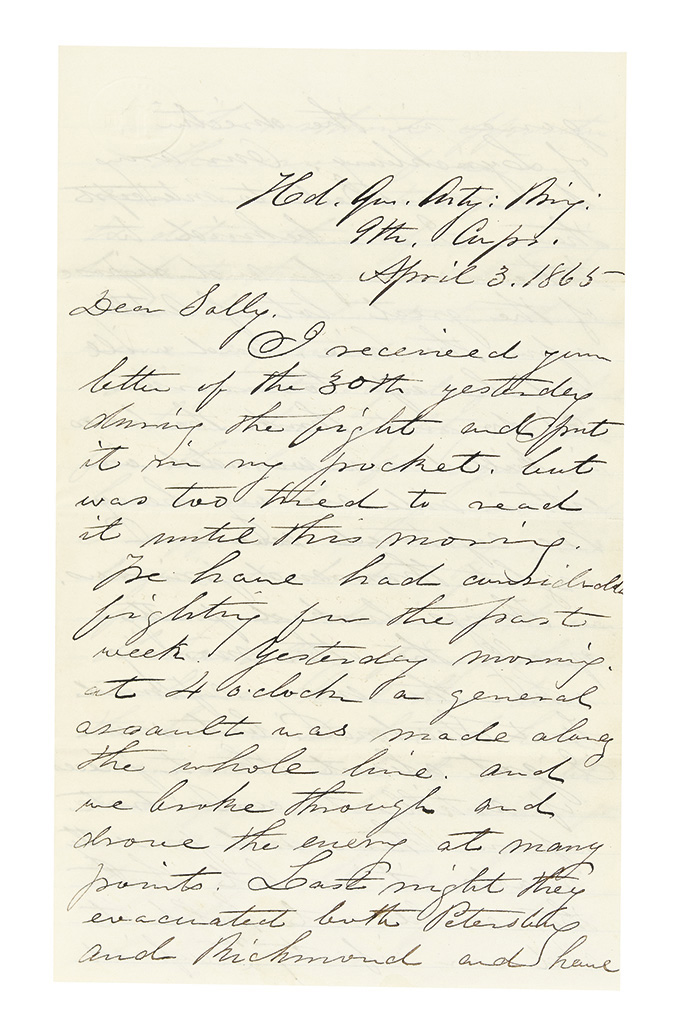 Hd. Qrs. Arty: Brig:
9th. Corps.
April 3. 1865
Dear Sally.
I received your
letter of the 30th yesterday
during the fight and put
it in my pocket. but
was too tried to read
it until this morning.
We have had considerable
fighting for the past
week. Yesterday morning.
at 4 o.clock a general
assault was made along
the whole line. and
we broke through and
drove the enemy at many
points. Last night they
evacuated both Petersburg
and Richmond and have